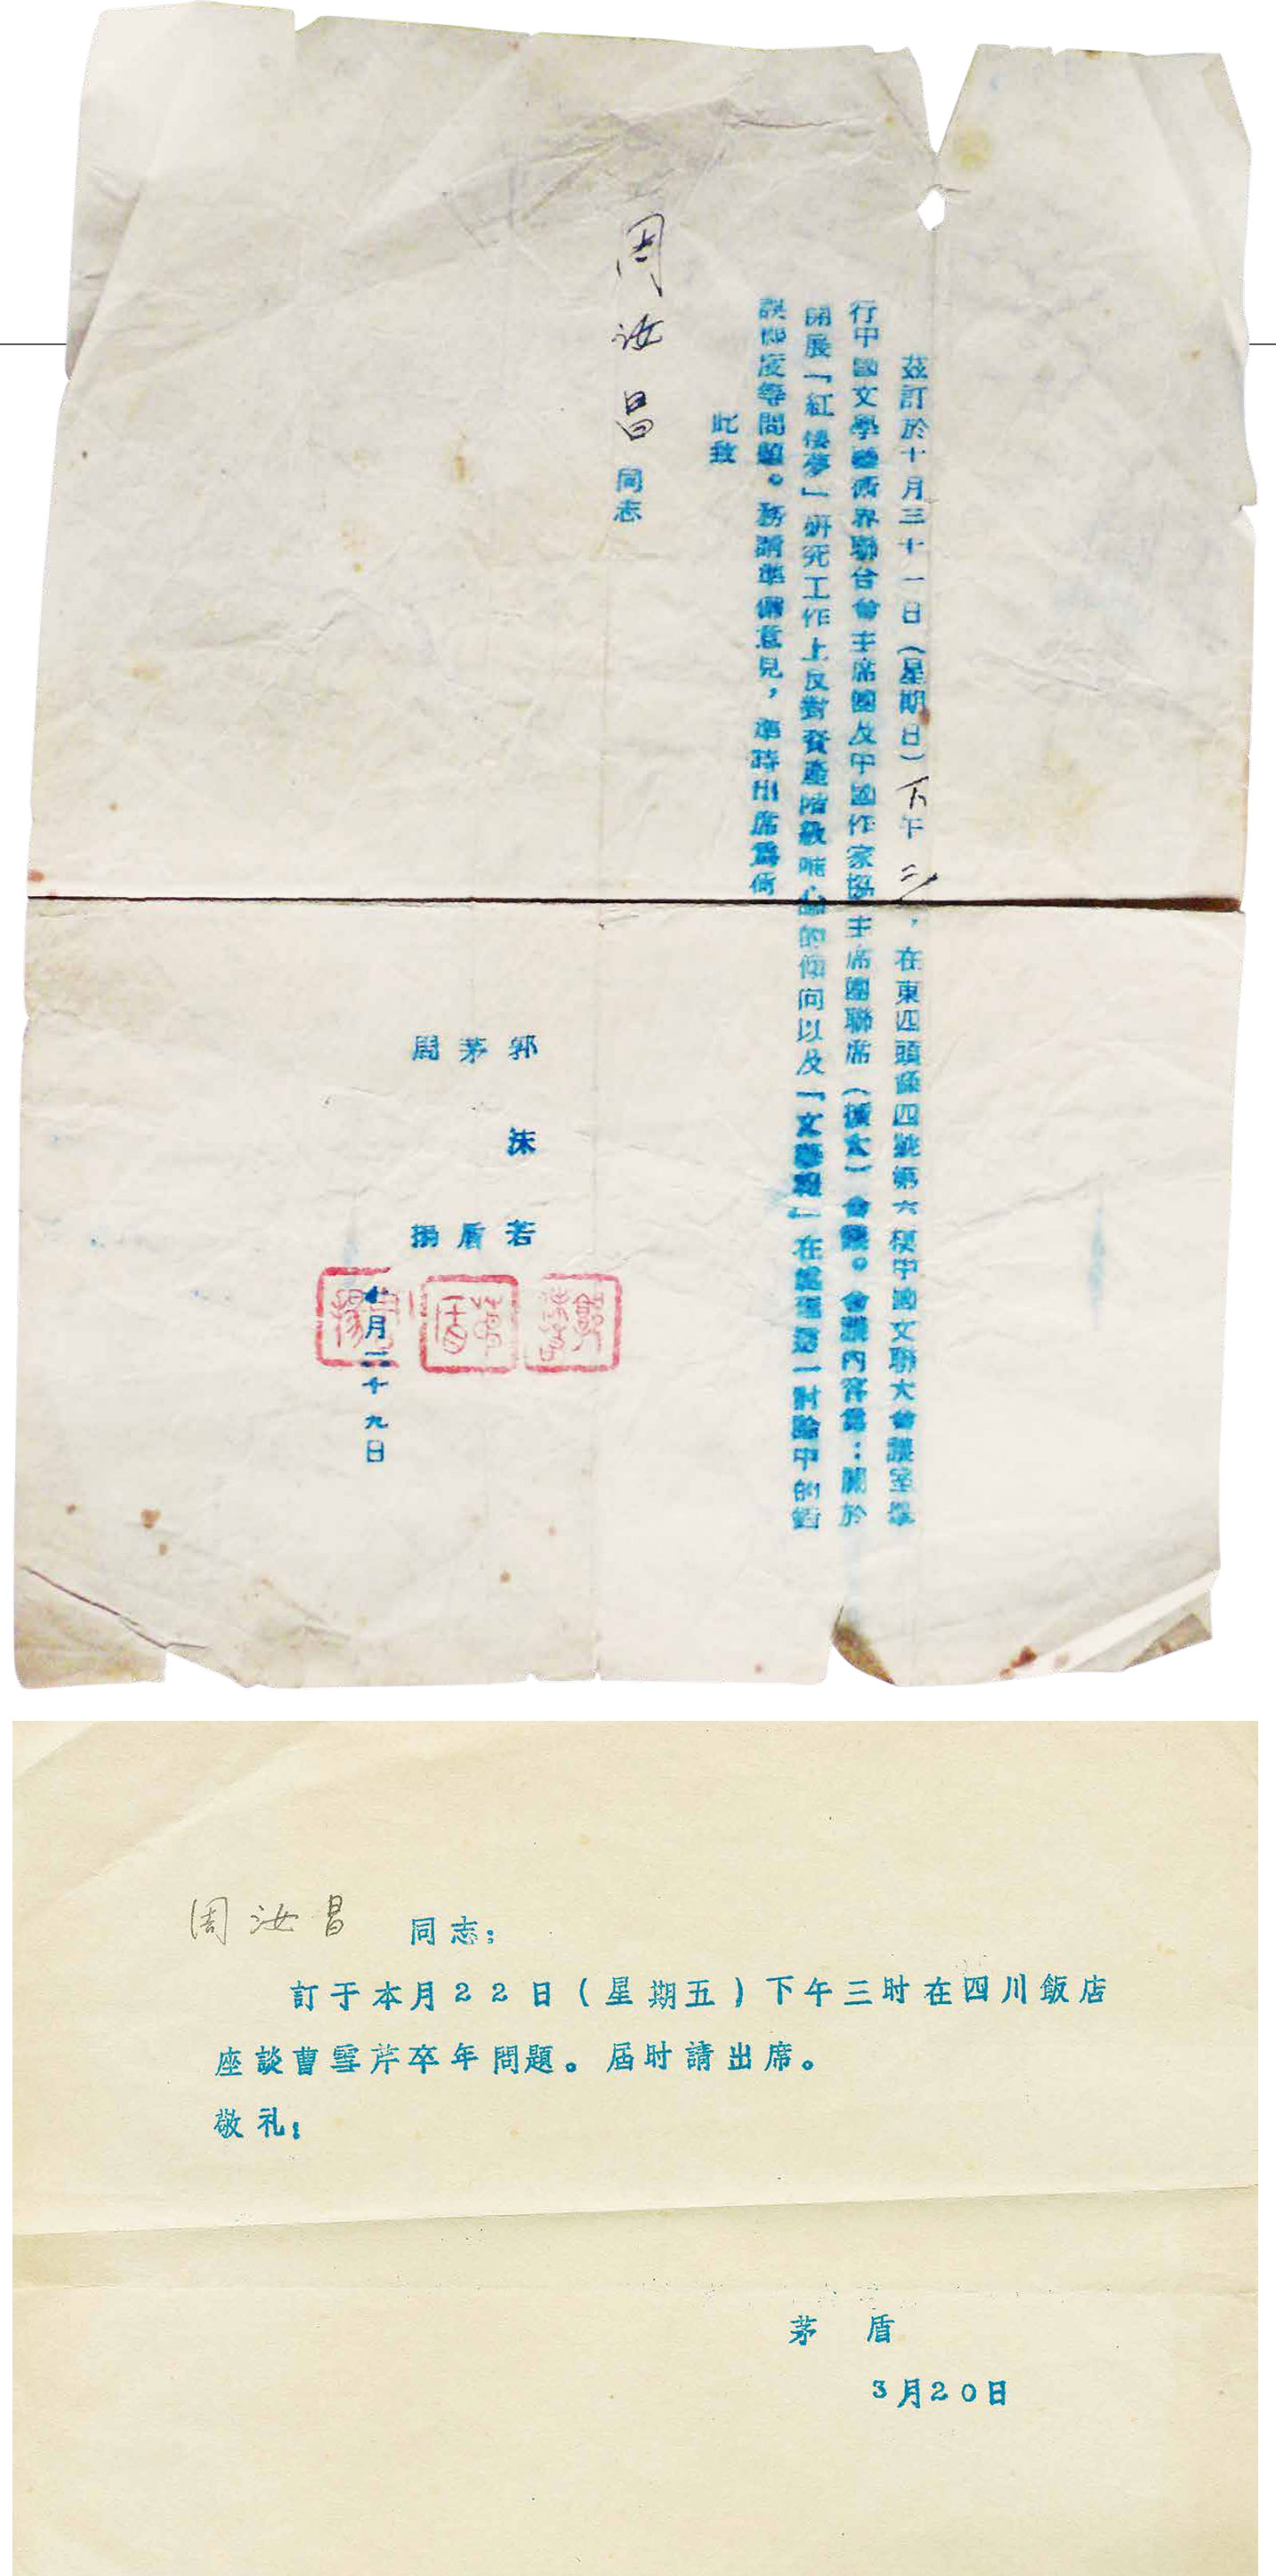 茲訂於十月三十一日（星期日）下午二，在東四頭條四號第六樓中國文聯大會議室舉
行中國文學藝術界聯合會主席團及中國作家協主席團聯席（擴大）會議。會議內容為：關於
開展「紅樓夢」研究工作上反對資產階級唯心論的傾向以及「文藝報」在處理這一討論中的錯
誤態度等問題。務請準備意見，準時出席為荷
此致
周汝昌同志
郭沫若
茅盾
周揚
郭沫若
茅盾
周揚
十月二十九日
周汝昌 同志：
訂于本月22日（星期五）下午三时在四川飯店
座談曹雪芹卒年問題。屆时請出席。
敬礼！
茅 盾
3月20日